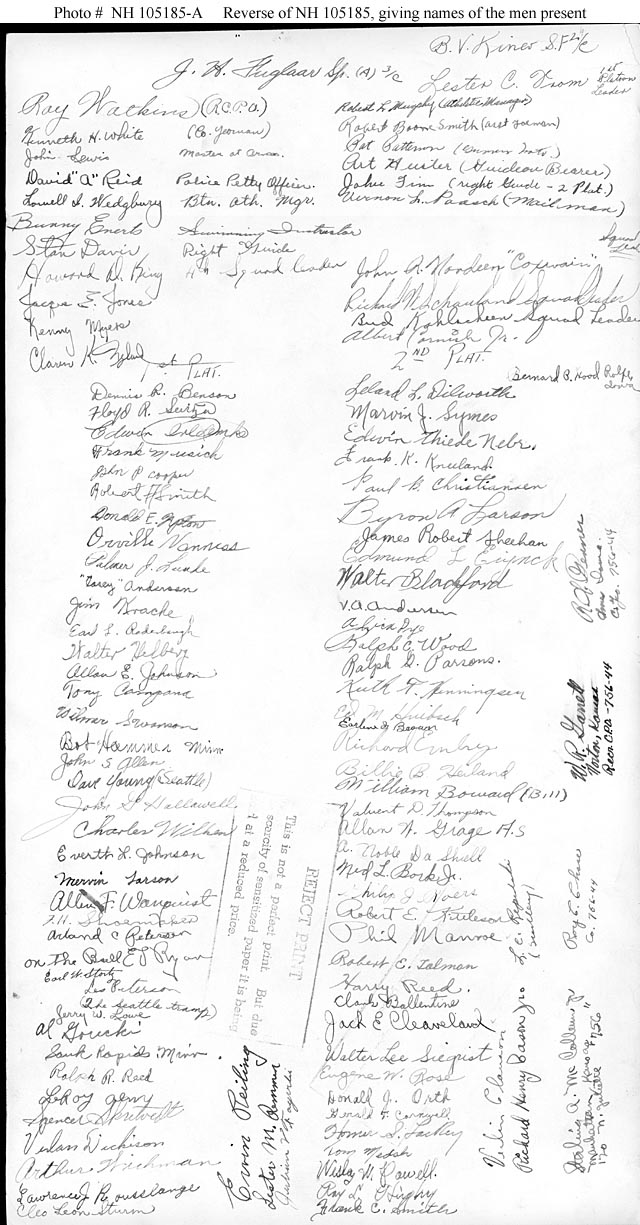 Photo # NH 105185-A Reverse of NH 105185, giving names of the men present
B. V. Kiner S.F 2/c
J. H. Fuglaar Sp. (A) 3/c
Lester C. Drom 1st Platoon Leader
Roy Watkins (R.C.P.O.)
Kenneth H. White (Co. Yeoman)
John Lewis Master at Arms.
David "A" Reid Police Petty Officer.
Lowell I. Wedgbury Btn. Ath. Mgr.
Bunny Enerb Swimming Instructor
Stan Davis Right Guide
Howard D. King 4th Squad leader
Jacque E. Jones
Kenny Myers
Claren K.
Robert L. Murphy (Athletic Manager)
Robert Boone Smith (asst Yeoman)
Pat Patterson
Art Huster (Guideon Bearer)
John Tim (right Guide - 2 Plat.)
Vernon L. Paasch (Mailman)
Squad Leader
John R. Nordeen "Coxswain"
Richard N. Schauland Squad leader
Bud Kohlscheen Squad Leader
Albert Cornish Jr.
1st PLAT.
Dennis R. Benson
Floyd R.
Edwin
Frank Musich
John P Cooper
Robert F Smith
Donald E. Upton
Orville Vanness
Palmer J. Lunde
"Corey" Anderson
Jim Krache
Earl L. Rodenbaugh
Walter Helberg
Allan E. Johnson
Tony Campana
Wilmer Swanson
Bob Hammer Minn
John S Allen
Dave Young (Seattle)
John S. Hallowell
Charles Wilhem
Everth L. Johnson
Mervin Larson
Allen F. Wanquist
F. H. Shoemaker
Arland C Petersen
on the Ball E J Ryan
Earl W. Stortz
Les Peterson
(The Seattle tramp)
Jerry W. Lowe
Al Gorecki
Sauk Rapids Minn.
Ralph R. Reed
LeRoy Jenny
Spencer
Verlan Dickison
Arthur Wichman
Lawrence J. Rousslange
Cleo Leon Sturm
2ND PLAT.
Bernard P. Hood Rolfe, Iowa
Leland L. Dilworth
Marvin J. Symes
Edwin Thiede Nebr.
Frank K. Kneeland
Paul B. Christiansen
Byron A Larson
James Robert Sheehan
Edmund L
Walter Blackford
V.A. Andersen
Ralph C. Wood
Ralph G. Parsons.
Keith F. Henningsen
Ed M. Huibsch
Earlene J Benson
Richard Embry
Billie B Heiland
William Boward (Bill)
Valient D. Thompson
Allan N. Grage A.S
A. Noble Da Shiell
Med L. Bork Jr.
Philip J. Moers
Robert E. Kittleson
Phil Manroe
Robert E. Talman
Harry Reed.
Clark Ballentine
Jack E Cleaveland
Walter Lee Siegrist
Eugene W. Rose
Donald J. Orth
Gerald F. Cornwell
Homer S. Lackey
Tom Medak
Wisla M. Powell.
Roy L.
Frank C. Smitler
REJECT PRINT
This is not a perfect print. But due
scarcity of sensitized paper it is being
at a reduced price.
Ervin Reiling
Lester M. Remmer
Julian
Verlin Clawson
Richard Henry Bason Jr.
Co. 756-44
W. R. Garrett
Norton, Kansas
Room CPO-756-44
Roy E. Chase
Co. 756-44
Sterling A. McCollum Jr
Manhattan Kansas
170 N. Juliette "756"